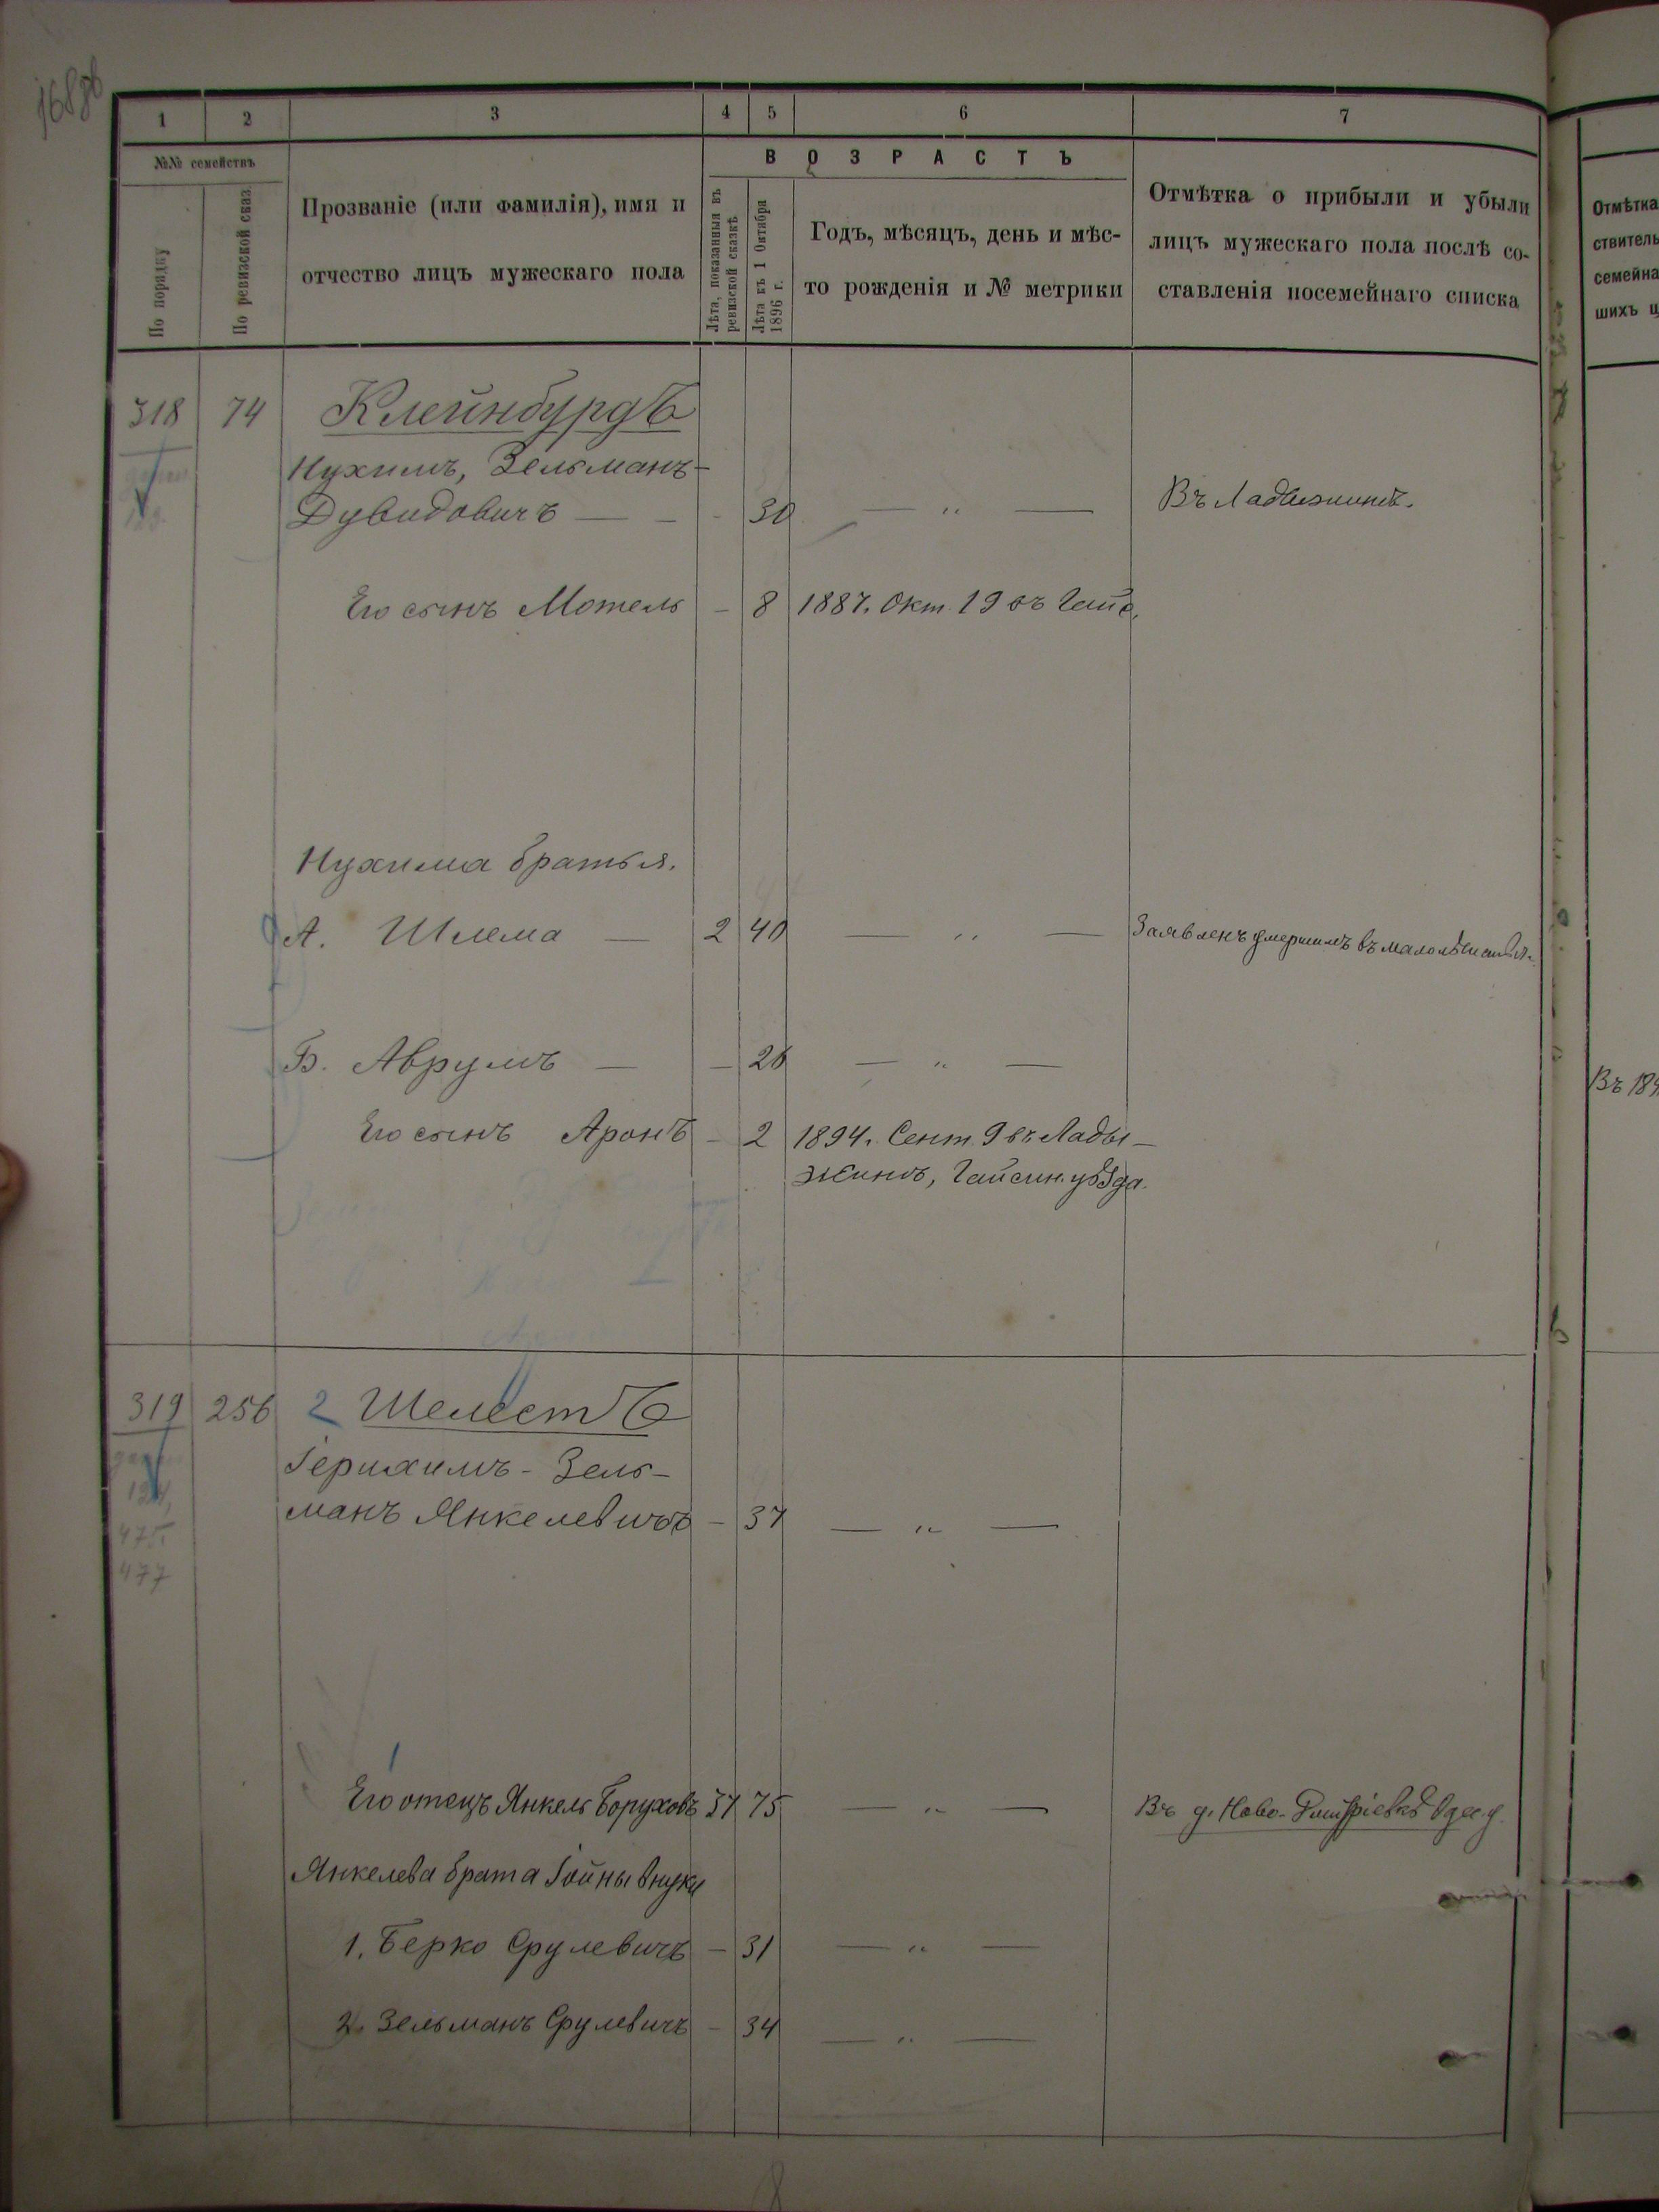 168об
1 2 3 4 5 6 7
№№ семействъ
По порядку
По ревизской сказ.
Прозваніе (или фамилія), имя и
отчество лицъ мужескаго пола
ВОЗРАСТЪ
Лѣта, показанныя въ
ревизской сказкѣ
Лѣта къ 1 Октября
1896 г.
Годъ, мѣсяцъ, день и мѣс-
то рожденія и № метрики
Отмѣтка о прибыли и убыли
лицъ мужескаго пола послѣ со-
ставленія посемейнаго списка
Отмѣтка
ствитель
семейна
шихъ ц
318 74 Клейнбурдъ
Нухимъ, Зельманъ-
Дувидовичъ — - - 30 — " — Въ Ладыжинѣ.
Его сынъ Мотель - 8 1887. Окт. 19 въ Гайс.
Нухима братья.
А. Шлема — 2 40 — " — Заявленъ умершимъ въ малолѣтствѣ.
Б. Аврумъ — - 26 — " —
Въ 189
Его сынъ Аронъ - 2 1894. Сент. 9 въ Лады-
жинѣ, Гайсин. уѣзда.
319 256 2 Шелестъ
Герихимъ - Зель-
манъ Янкелевичъ - 37 — " —
475
477
1
Его отецъ Янкель Боруховъ 37 75 — " — Въ д. Ново-Дмитріевкѣ Одес. у.
Янкелева брата Іойны внуки
1. Берко Срулевичъ - 31 — " —
2. Зельманъ Срулевичъ - 34 — " —